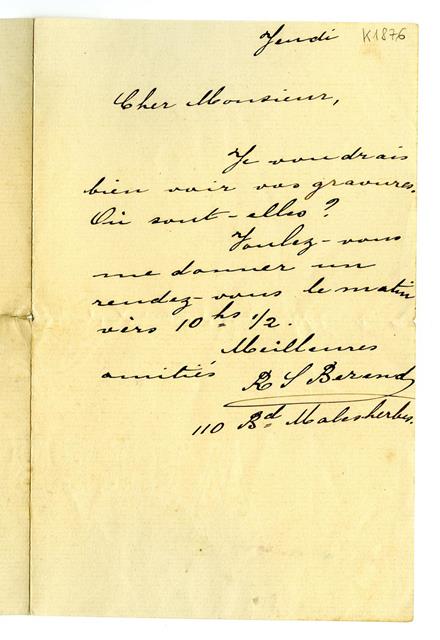 Jeudi K1876
Cher Monsieur,
Je voudrais
bien voir vos gravures.
Où sont-elles?
Voulez-vous
me donner un
rendez-vous le matin
vers 10 hs 1/2.
Meilleures
amitiés R S Berend
110 Bd Malesherbes.